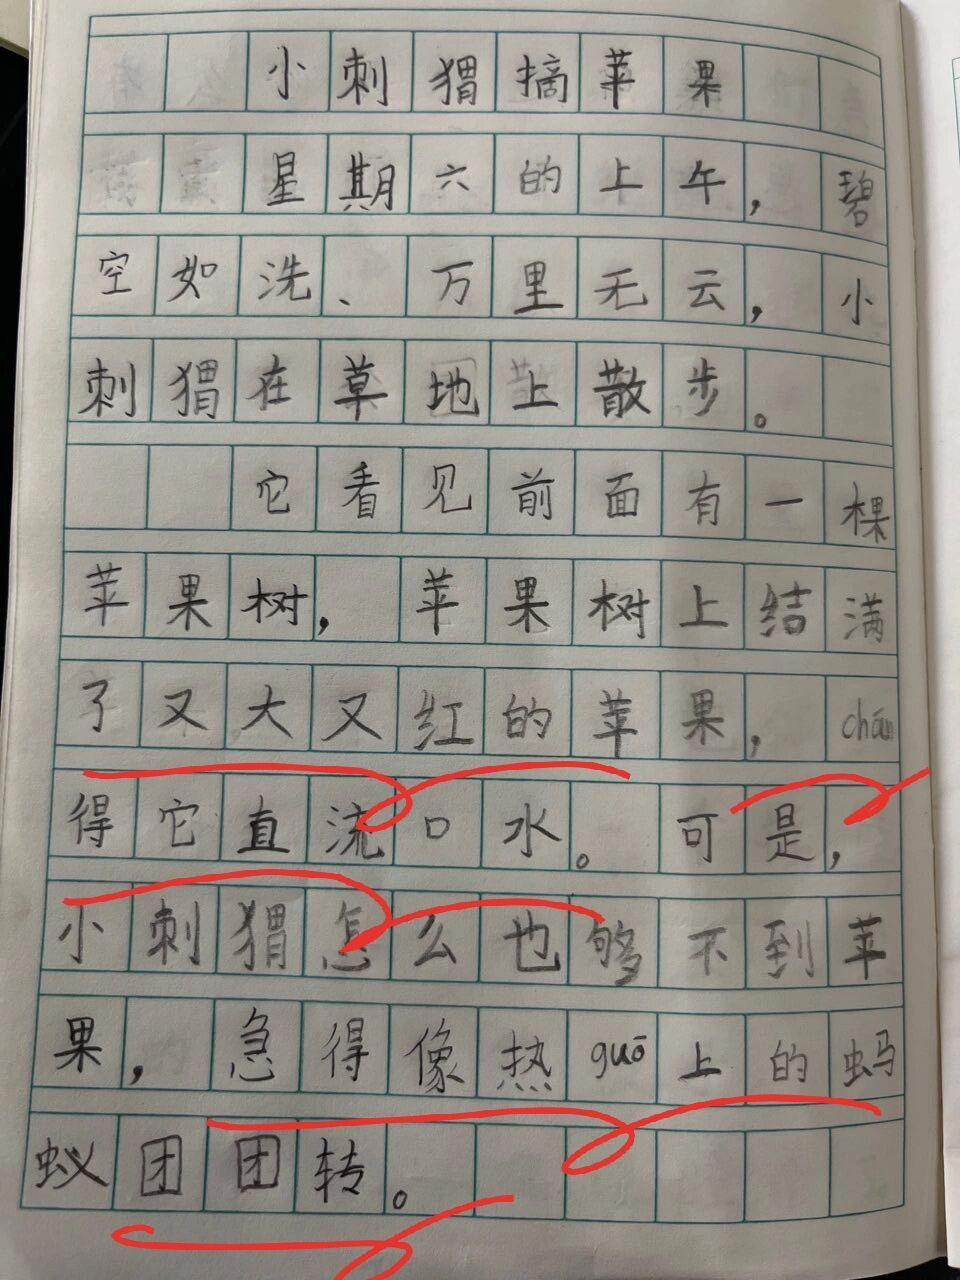 小刺猬摘苹果
星期六的上午，碧
空如洗、万里无云，小
刺猬在草地上散步。
它看见前面有一棵
苹果树，苹果树上结满
了又大又红的苹果，chán
得它直流口水。可是，
小刺猬怎么也够不到苹
果，急得像热guō上的蚂
蚁团团转。